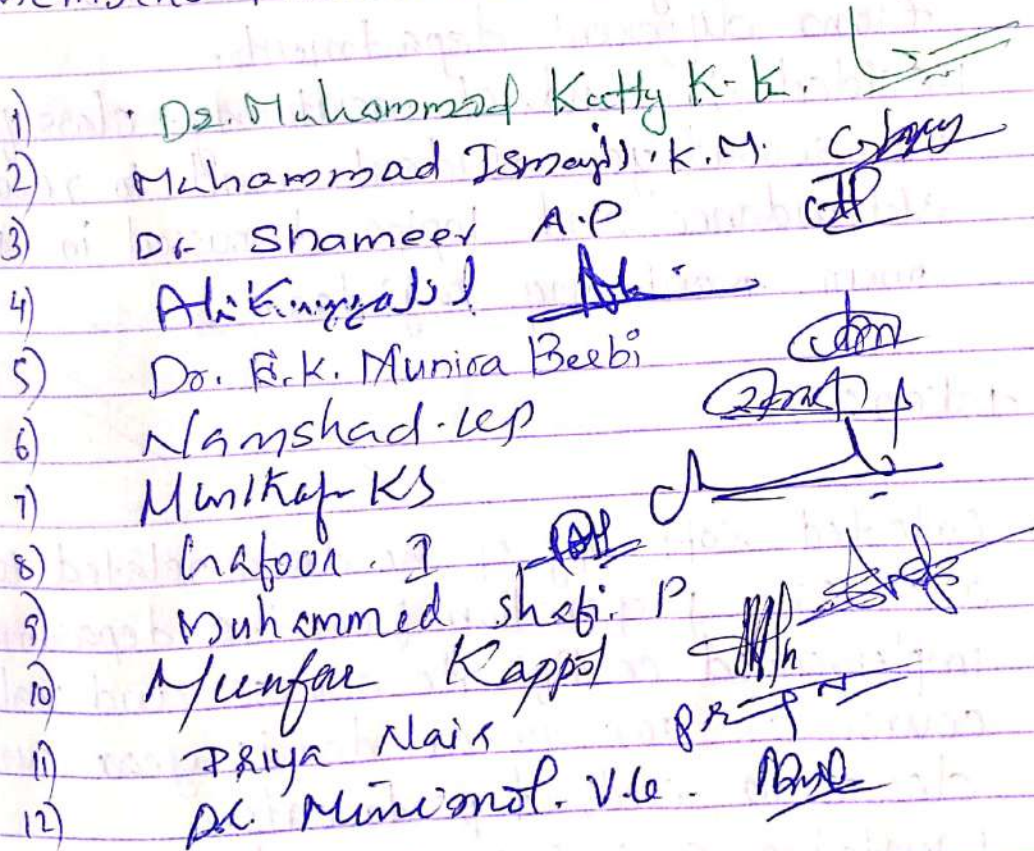 1) Dr. Muhammad Kutty K. K.
2) Muhammad Ismayil. K. M.
3) Dr Shameer A.P
4) Ali
5) Dr. E.K. Munira Beebi
6) Namshad. K P
7) KS
8) Gafoor. I
9) Muhammed Shafi. P
10) Munfar Kappol
11) Priya Nair
12) Dr. Minimol. V.K.